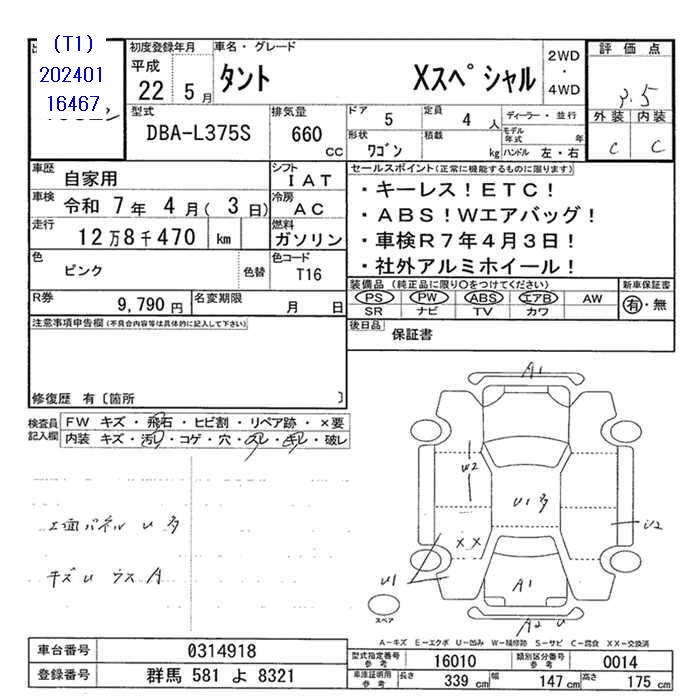 (T1)
202401
16467
初度登録年月
平成
22 5月
車名・グレード
タント Xスペシャル
2WD
・
4WD
評価点
3.5
外装 内装
C C
型式
DBA-L375S
排気量
660
CC
ドア 5
定員 4 人
ディーラー・並行
形状 ワゴン
積載 kg
モデル年式 年
ハンドル 左・右
車歴 自家用
シフト IAT
車検 令和 7年 4月( 3日)
冷房 AC
走行 12万8千470 km
燃料 ガソリン
色 ピンク
色替
色コード T16
R券 9,790円
名変期限 月 日
セールスポイント(正常に機能するものに限ります)
・キーレス!ETC!
・ABS!Wエアバッグ!
・車検R7年4月3日!
・社外アルミホイール!
装備品(純正品に限り○をつけてください)
PS PW ABS エアB AW
SR ナビ TV カワ
新車保証書
有・無
後日品 保証書
注意事項申告欄(不具合内容等は具体的に記入して下さい)
修復歴 有〔箇所 〕
検査員記入欄
FW キズ・飛石・ヒビ割・リペア跡・×要
内装 キズ・汚レ・コゲ・穴・スレ・キレ・破レ
U 多
キズU ウス A
A1
W2
U1 多
U2
XX
U1
A1
A2 U
スペア
A-キズ E-エクボ U-凹み W-補修跡 S-サビ C-腐食 XX-交換済
車台番号 0314918
登録番号 群馬 581 よ 8321
型式指定番号 参考 16010
類別区分番号 参考 0014
車庫証明用 参考 長さ 339 cm 幅 147 cm 高さ 175 cm